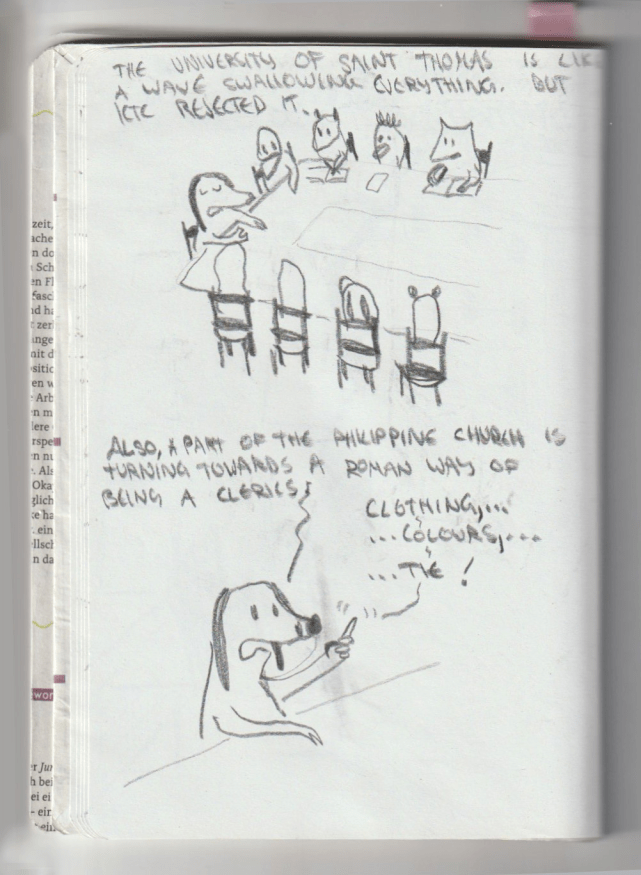 THE UNIVERSITY OF SAINT THOMAS IS LIK
A WAVE SWALLOWING EVERYTHING. BUT
ICTC REJECTED IT.
ALSO, A PART OF THE PHILIPPINE CHURCH IS
TURNING TOWARDS A ROMAN WAY OF
BEING A CLERICS:
CLOTHING,...
...COLOURS,...
...TIE!
zeit,
ache
n do
Sch
en Fl
fasc
nd ha
zer
ange
mit d
ositio
en w
Arb
n m
lere
rspe
n nu
. Als
Oka
glich
ke ha
. ein
ellsch
n da
wor
er Jur
h bei
ei ei
- ein
ein